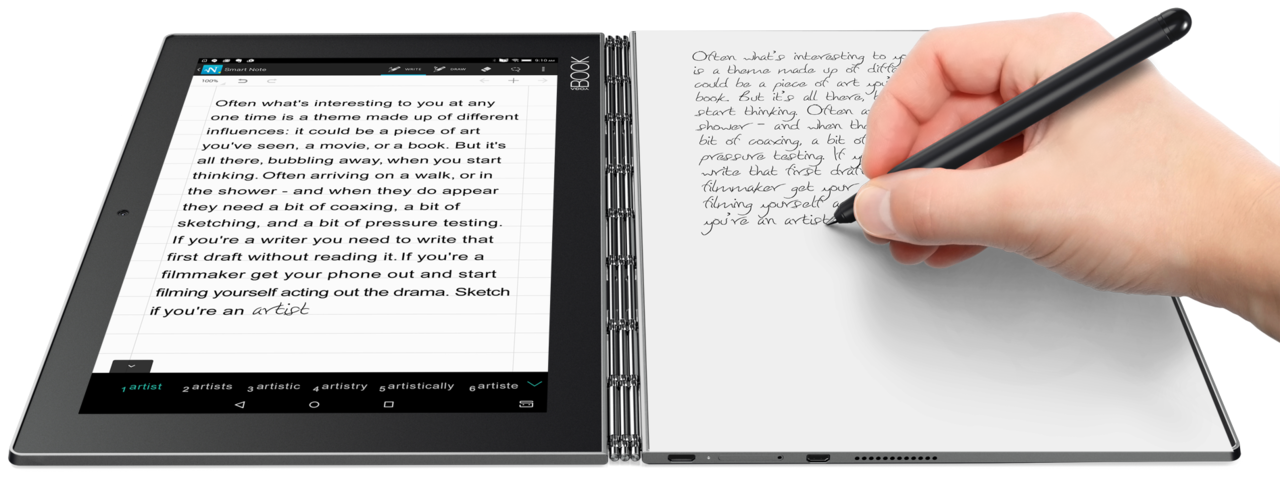 Smart Note
WRITE
DRAW
9:10 AM
100%
YOGA BOOK
Often what's interesting to you at any
one time is a theme made up of different
influences: it could be a piece of art
you've seen, a movie, or a book. But it's
all there, bubbling away, when you start
thinking. Often arriving on a walk, or in
the shower - and when they do appear
they need a bit of coaxing, a bit of
sketching, and a bit of pressure testing.
If you're a writer you need to write that
first draft without reading it. If you're a
filmmaker get your phone out and start
filming yourself acting out the drama. Sketch
if you're an artist
1 artist 2 artists 3 artistic 4 artistry 5 artistically 6 artiste
Often what's interesting to
is a theme made up of
could be a piece of art
book. But it's all there,
start thinking. Often
shower - and when
bit of coaxing, a bit of
pressure testing. If
write that first
filmmaker get your
filming yourself
you're an artist